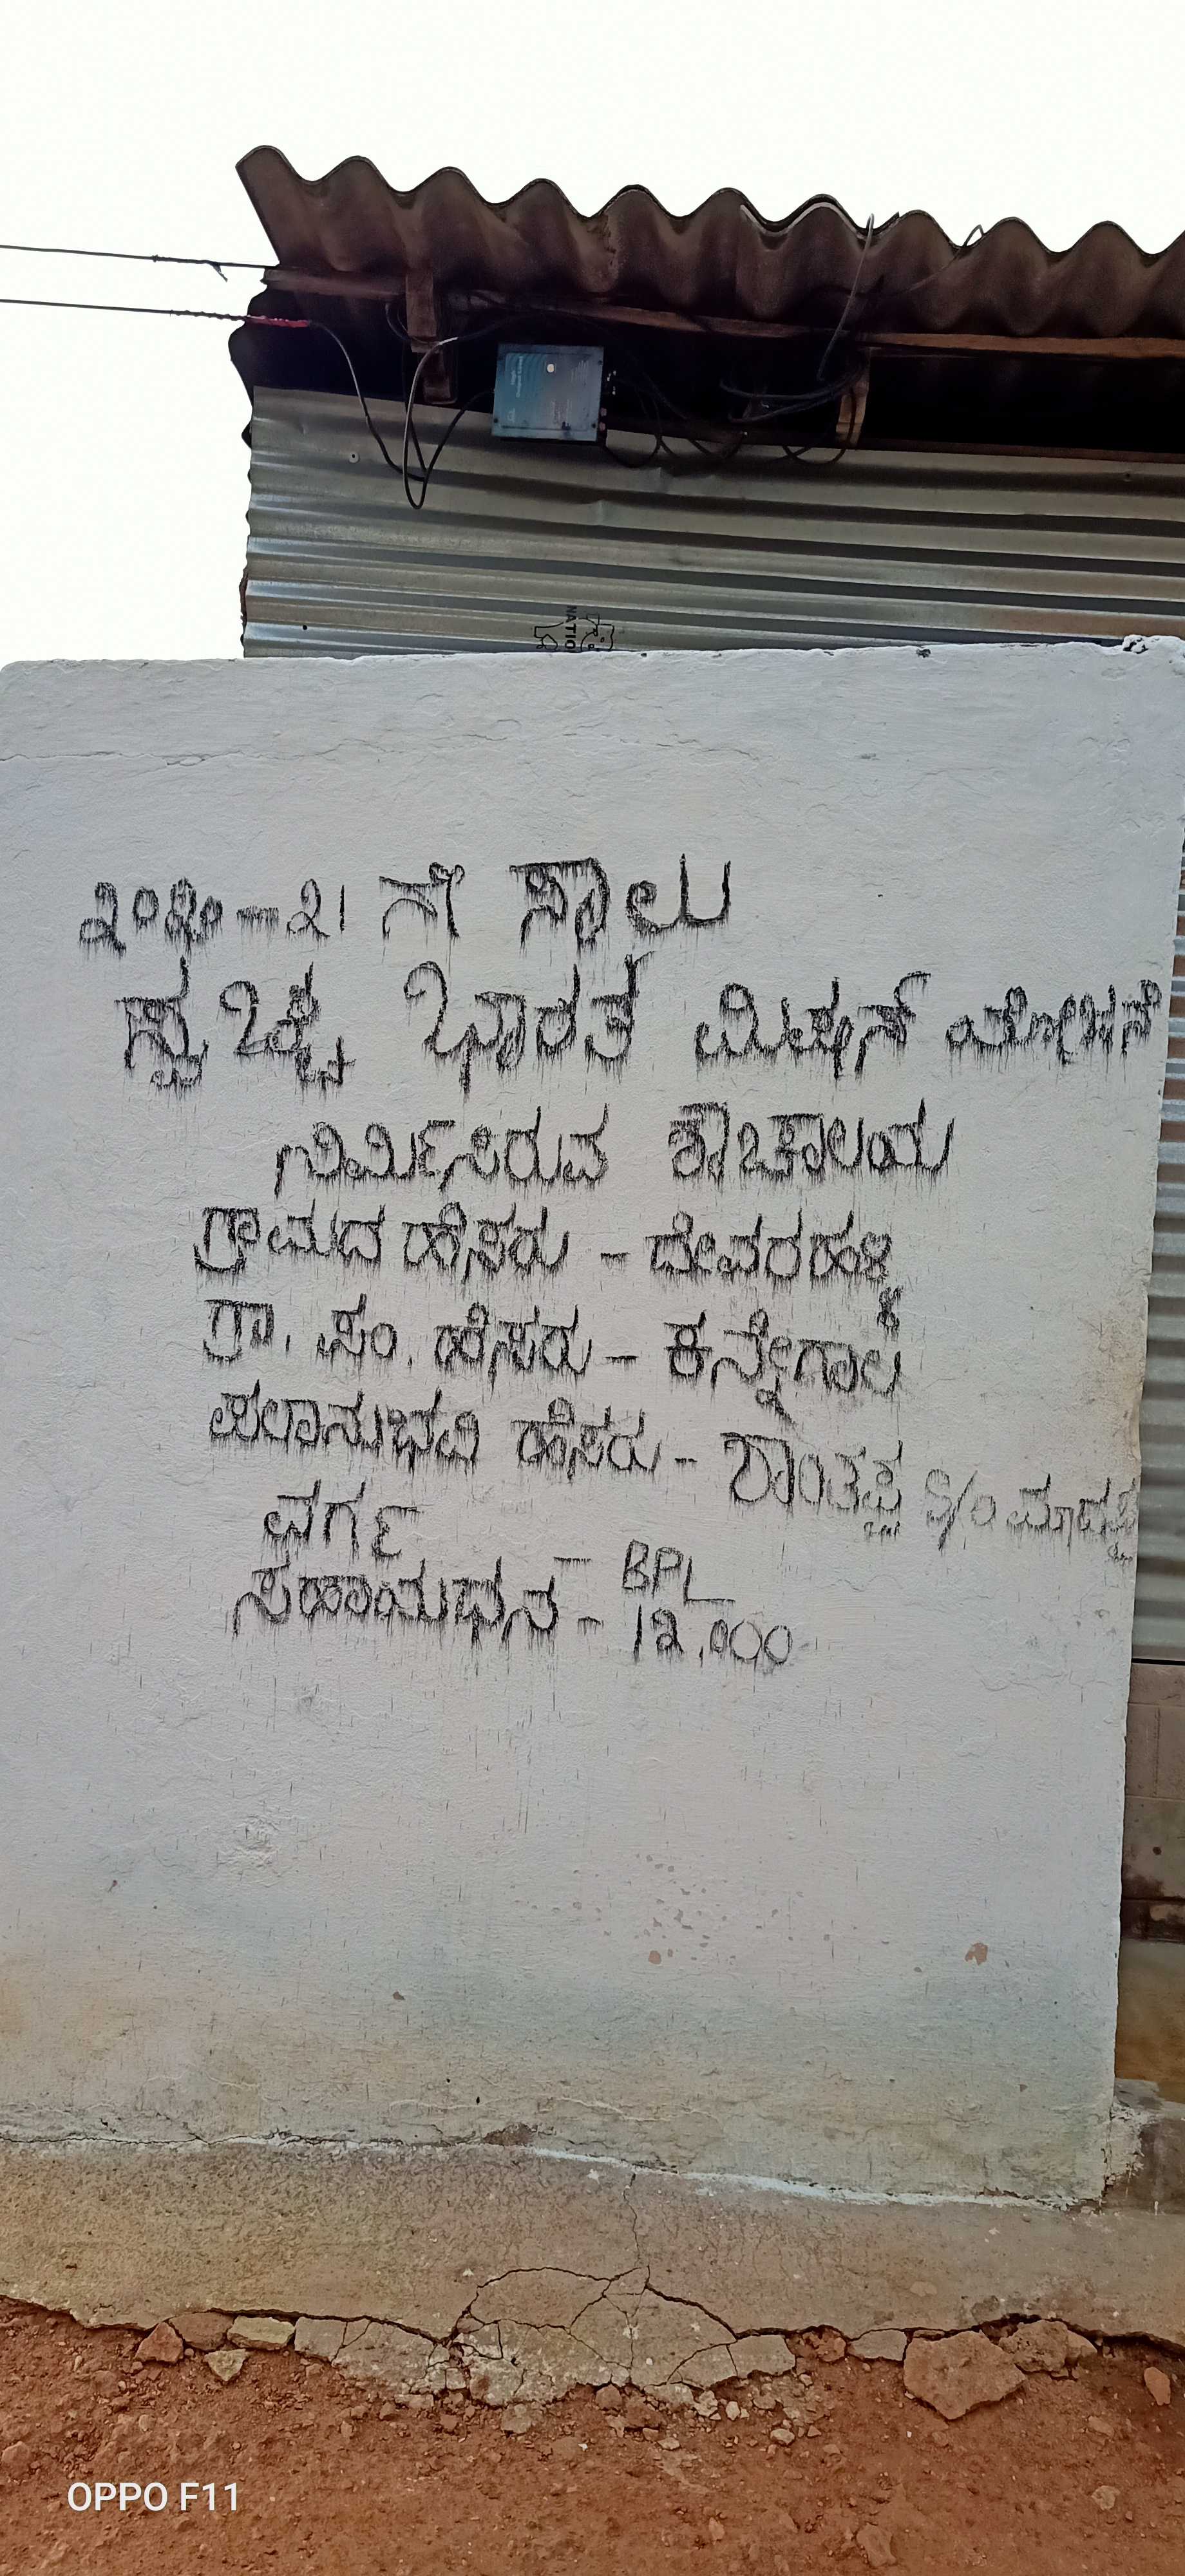 ೨೦೨೦-೨೧ ನೇ ಸಾಲು
ಸ್ವಚ್ಛ ಭಾರತ ಮಿಷನ್ ಯೋಜನೆ
ನಿರ್ಮಿಸಿರುವ ಶೌಚಾಲಯ
ಗ್ರಾಮದ ಹೆಸರು - ದೇವರಹಳ್ಳಿ
ಗ್ರಾ. ಪಂ. ಹೆಸರು - ಕನ್ನೇಗಾಲ
ಫಲಾನುಭವಿ ಹೆಸರು - ಶಾಂತಪ್ಪ S/o ಮಾದಪ್ಪ
ವರ್ಗ - BPL
ಸಹಾಯಧನ - 12,000
OPPO F11